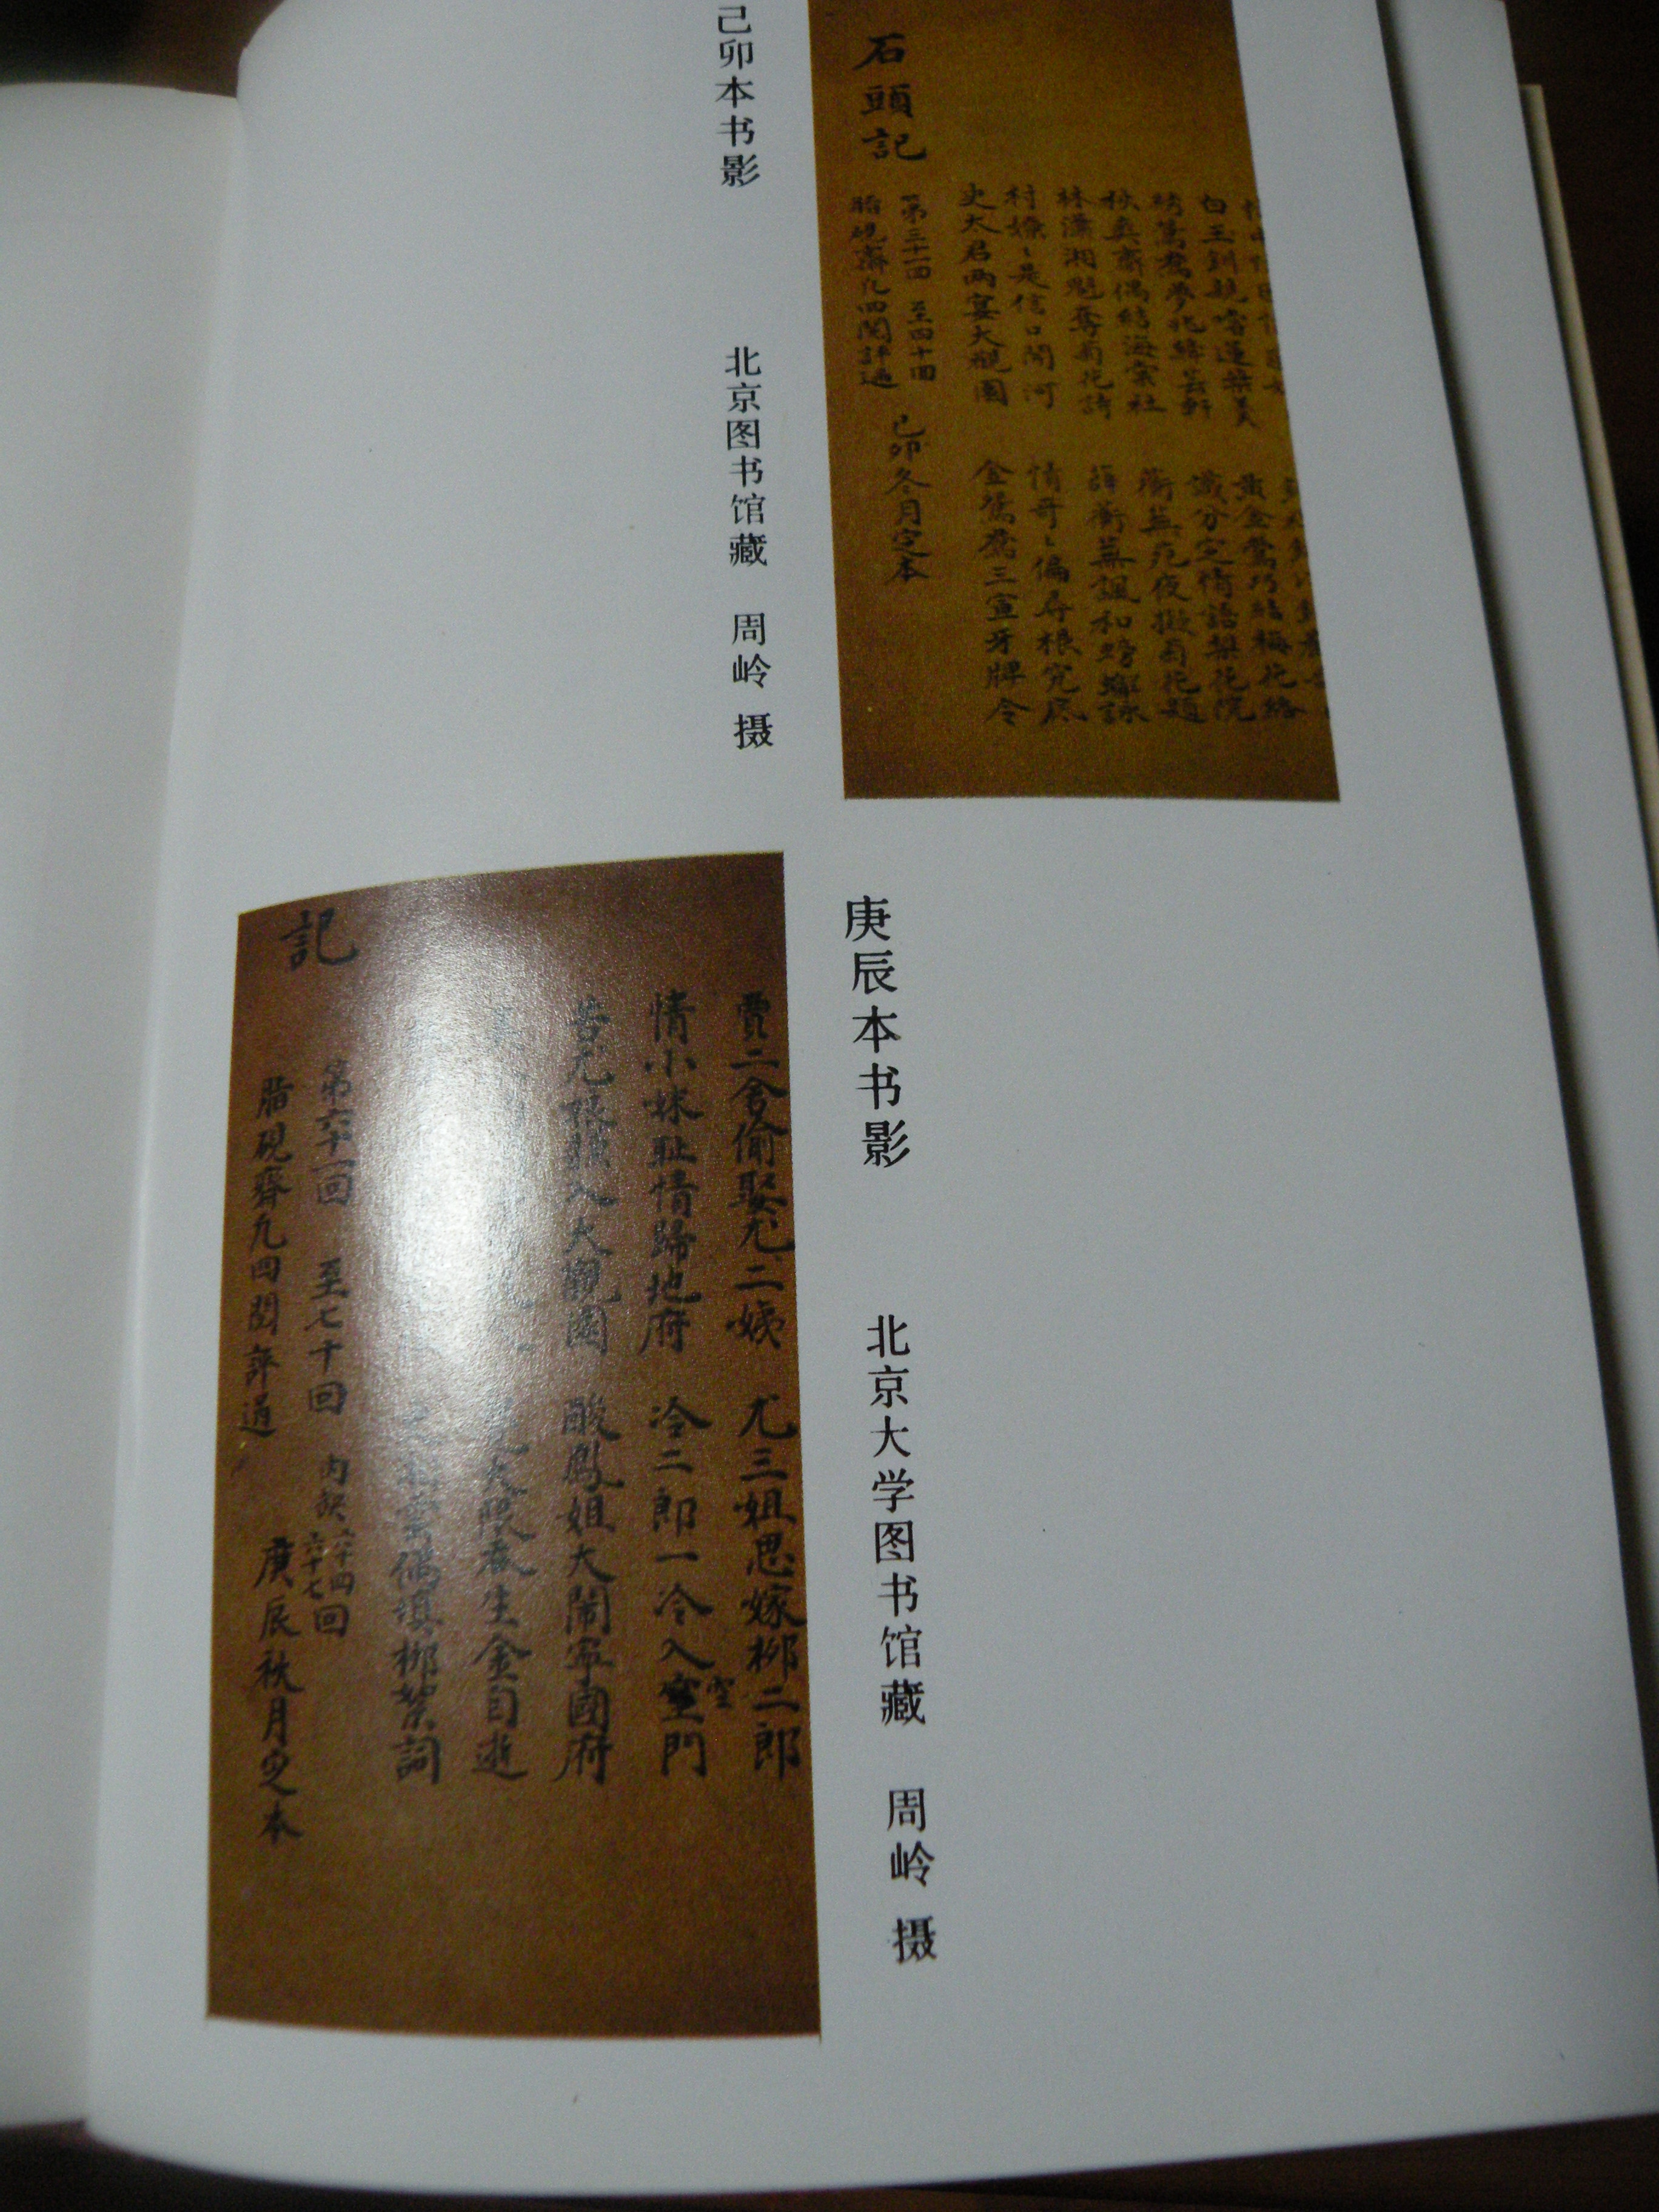 白玉釧親嚐蓮葉羹 黃金鶯巧結梅花絡
綉鴛鴦夢兆絳芸軒 識分定情語梨花院
秋爽齋偶結海棠社 蘅蕪苑夜擬菊花題
林瀟湘魁奪菊花詩 薛蘅蕪諷和螃蠏詠
村嫽〻是信口開河 情哥〻偏尋根究底
史太君兩宴大觀園 金鴛鴦三宣牙牌令
石頭記
第三十一回 至四十回
脂硯齋凢四閱評過 己卯冬月定本
己卯本书影 北京图书馆藏 周岭 摄
庚辰本书影 北京大学图书馆藏 周岭 摄
賈二舍偷娶尤二姨 尤三姐思嫁柳二郎
情小妹耻情歸地府 冷二郎一冷入空門
苦尤娘賺入大觀園 酸鳳姐大鬧寧國府
吞生金自逝
偶填柳絮詞
記
第六十一回 至七十回 內缺六十四 六十七回
脂硯齋凢四閱評過 庚辰秋月定本